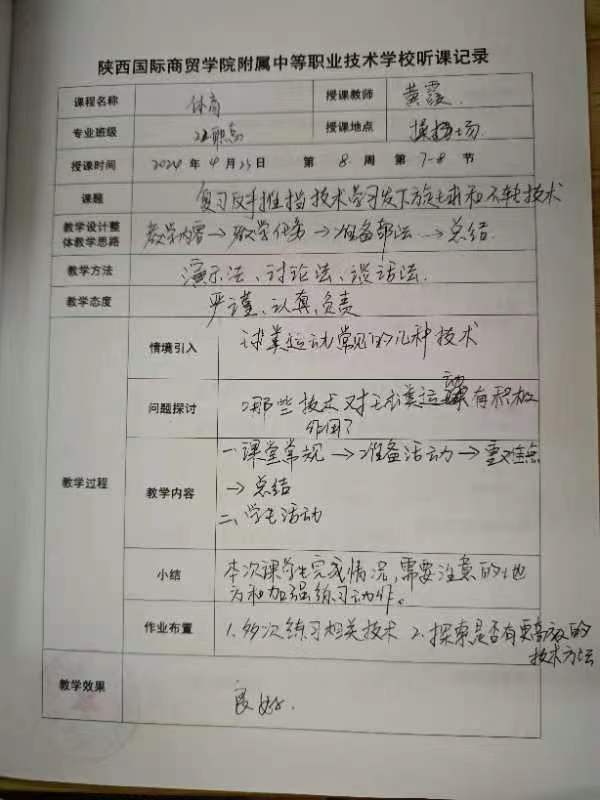 陕西国际商贸学院附属中等职业技术学校听课记录
课程名称 体育 授课教师 黄霞
专业班级 授课地点 操场
授课时间 2024年4月25日 第8周 第7-8节
课题 复习反手推挡技术学习发下旋球和不转技术
教学设计整体教学思路 教学内容→教学任务→准备部法→总结
教学方法 演示法、讨论法、谈话法.
教学态度 严谨、认真、负责
教学过程
情境引入 球类运动常见的几种技术
问题探讨 哪些技术对球类运动有积极
作用?
教学内容 一课堂常规→准备活动→重难点
→总结
二、学生活动
小结 本次课学生完成情况,需要注意的地
方和加强练习动作。
作业布置 1.多次练习相关技术 2.探索是否有更高效的
技术方法
教学效果 良好.